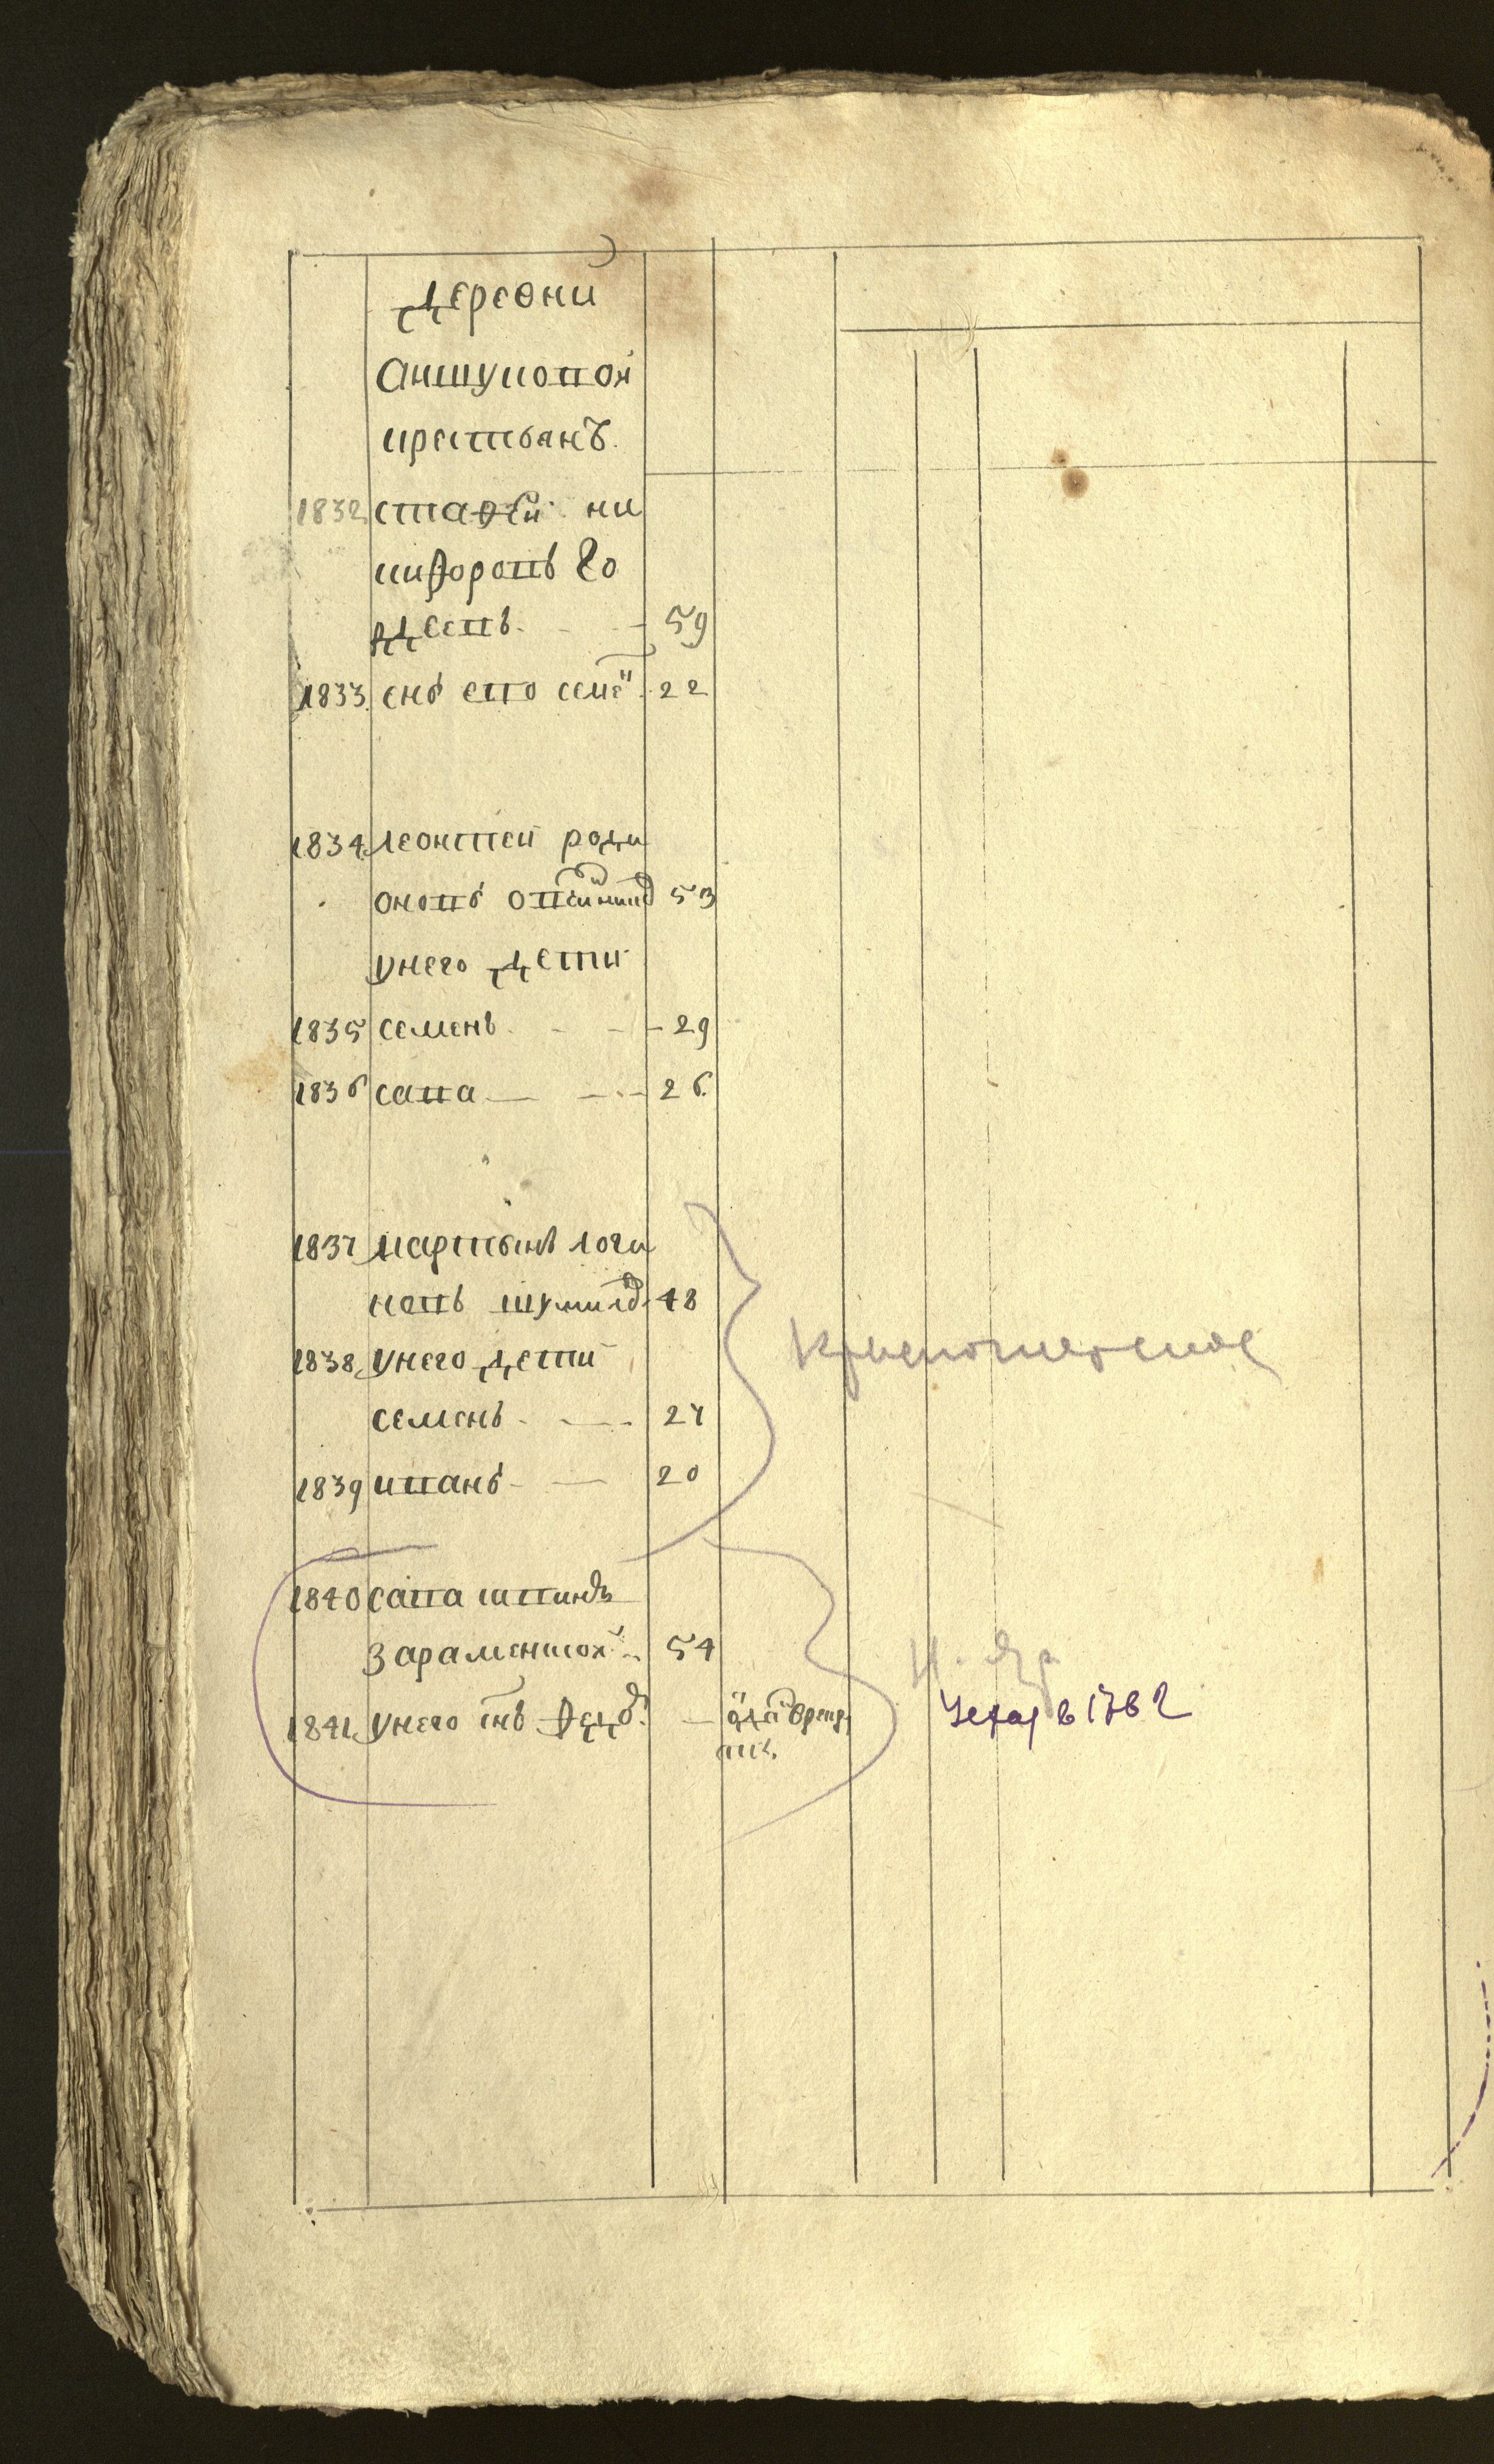 деревни
аншуковой
крестьянъ
1832 стафеи ни
кифоровъ го
дѣевъ 59
1833 снъ ево семе 22
1834 леонтеи роди
оновъ 53
унего дети
1835 семенъ 29
1836 сава 26
1837 мартынъ логи
новъ 48
1838 унего дети
семенъ 27
1839 иванъ 20
1840 сава
зараменской 54
1841 унего снъ
в 1762